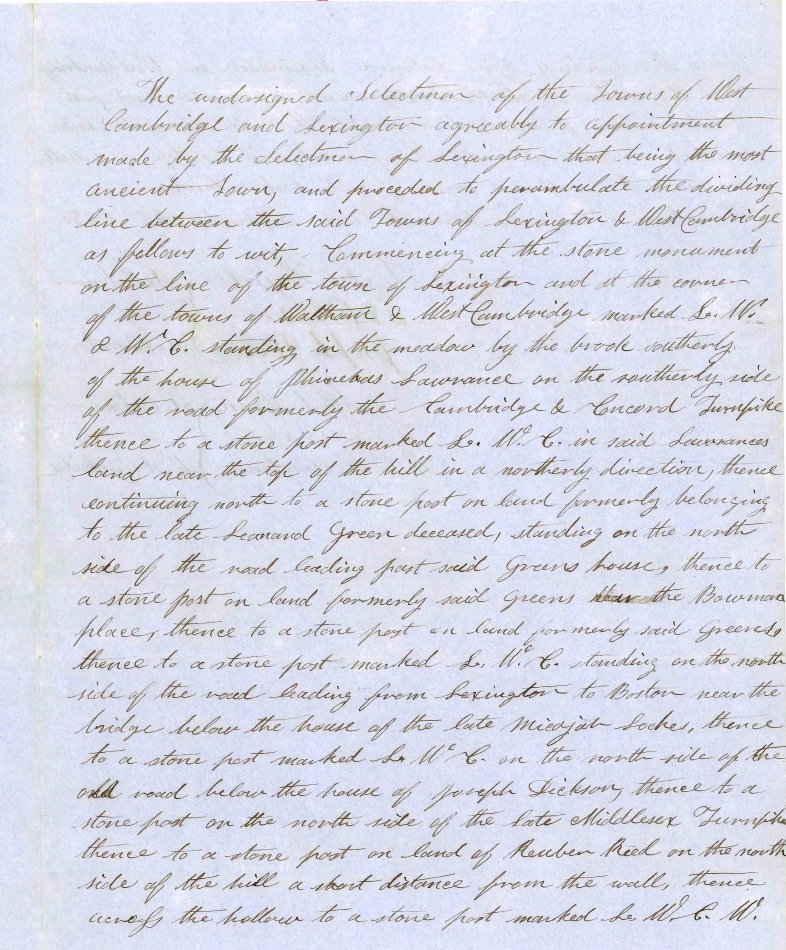 The undersigned Selectmen of the Towns of West
Cambridge and Lexington agreeably to appointment
made by the Selectmen of Lexington that being the most
ancient Town, and proceded to perambulate the dividing
line between the said Towns of Lexington & West Cambridge
as follows to wit, Commencing at the stone monument
on the line of the town of Lexington and at the corner
of the towns of Waltham & West Cambridge marked L. W.
& W. C. standing in the meadow by the brook southerly
of the house of Phinehas Lawrance on the southerly side
of the road formerly the Cambridge & Concord Turnpike
thence to a stone post marked L. W. C. in said Lawrances
land near the top of the hill in a northerly direction, thence
continuing north to a stone post on land formerly belonging
to the late Leonard Green deceased, standing on the north
side of the road leading past said Greens house, thence to
a stone post on land formerly said Greens near the Bowman
place, thence to a stone post on land formerly said Greens,
thence to a stone post marked L. W. C. standing on the north
side of the road leading from Lexington to Boston near the
bridge below the house of the late Micajah Lockes, thence
to a stone post marked L. W C. on the north side of the
old road below the house of Joseph Dickson, thence to a
stone post on the north side of the late Middlesex Turnpike
thence to a stone post on land of Reuben Reed on the north
side of the hill a short distance from the wall, thence
across the hollow to a stone post marked L. W. C. W.